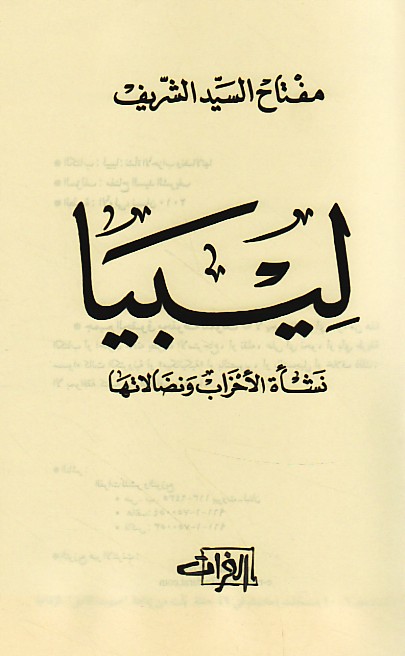 مفتاح السيّد الشريف
لِيبيَا
نَشأة الأحزاب ونضالاتها
الفرات